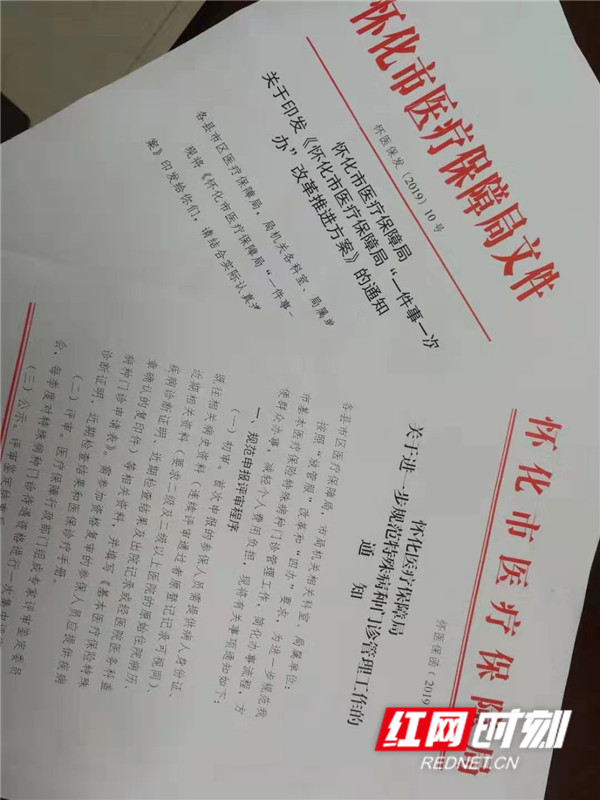 怀化市医疗保障局文件
怀医保发〔2019〕10号
怀化市医疗保障局
关于印发《怀化市医疗保障局“一件事一次
办”改革推进方案》的通知
各县市区医疗保障局，局机关各科室、局属单
现将《怀化市医疗保障局“一件事一
案》印发给你们，请结合实际认真
怀化市医疗保障局
怀医保函〔2019
怀化医疗保障局
关于进一步规范特殊病种门诊管理工作的
通知
各县市区医疗保障局，市局机关相关科室，局属单位：
按照“放管服”改革和“四办”要求，为进一步规范我
市基本医疗保险特殊病种门诊管理工作，简化办事流程，方
便群众办事，减轻个人费用负担，现将有关事项通知如下：
一、规范申报评审程序
（一）初审。首次申报的参保人员需提供病人身份证、
既往相关病史资料（连续评审通过者原登记记录可视同）、
近期相关资料（要求二级及二级以上医院的原始住院病历、
疾病诊断证明、近期检查结果及出院记录或经医院医务科盖
章确认的复印件）等相关资料，并填写《基本医疗保险特殊
病种门诊申请表》。需参加资格复审的参保人员应提供疾病
诊断证明、近期检查结果和医保诊疗手册。
（二）评审。医疗保障行政部门组成专家评审鉴定委员
会，每季度对特殊病种门诊待遇资格进行一次集中评审
（三）公示。评审鉴定结束
红网时刻
REDNET.CN